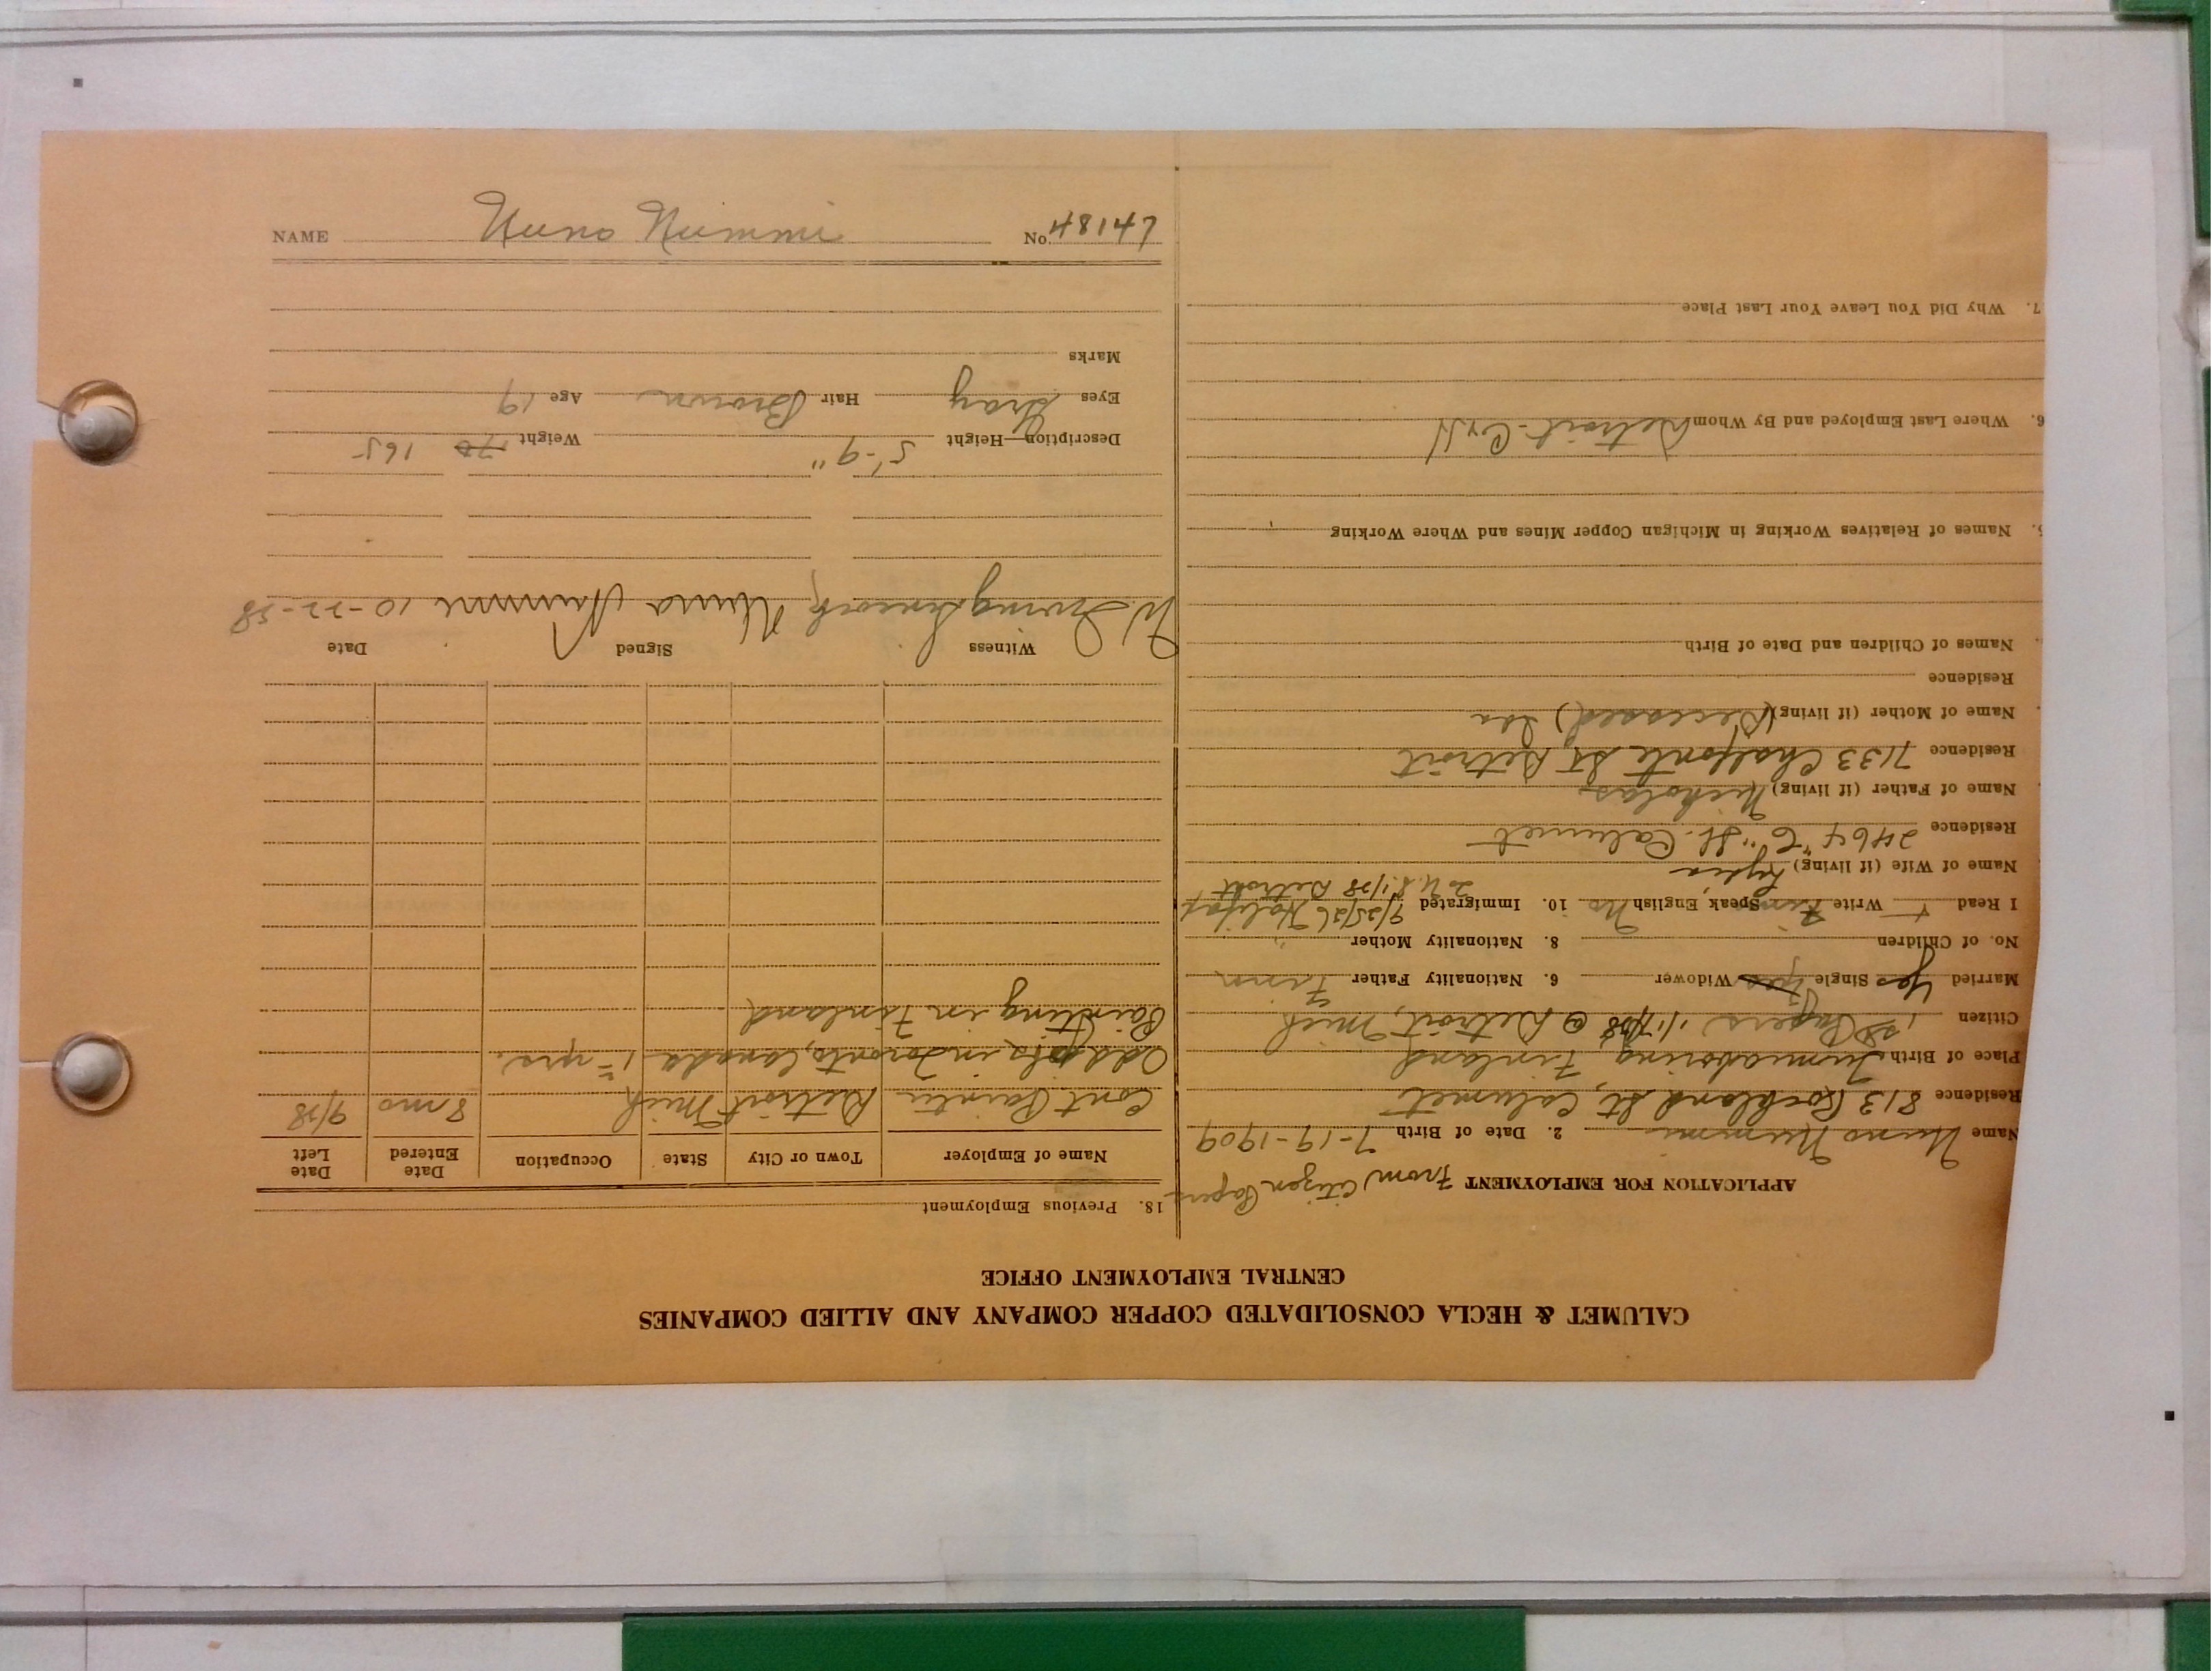 NAME Uuno Nummi No. 48147
CALUMET & HECLA CONSOLIDATED COPPER COMPANY AND ALLIED COMPANIES
CENTRAL EMPLOYMENT OFFICE
APPLICATION FOR EMPLOYMENT From Citizen Papers
Name Uuno Nummi 2. Date of Birth 7-19-1909
Residence 813 Rockland St, Calumet
Place of Birth Finland
Citizen 1st Papers @ Detroit, Mich
Married Yes Single Yes Widower 6. Nationality Father Finn
No. of Children 8. Nationality Mother "
I Read Write Finn Speak English No 10. Immigrated 9/25/26 Halifax
to U.S. 1/28 Detroit
Name of Wife (if living) Lydia
Residence 2464 "C" St. Calumet
Name of Father (if living) Nicholas
Residence 7133 Chalfonte St Detroit
Name of Mother (if living) (Deceased)
Residence
Names of Children and Date of Birth
Names of Relatives Working in Michigan Copper Mines and Where Working
6. Where Last Employed and By Whom Detroit
7. Why Did You Leave Your Last Place
18. Previous Employment
Name of Employer Town or City State Occupation Date Entered Date Left
Cont Painter Detroit Mich 8 mo 9/28
Odd jobs in Toronto, Canada yrs.
Painting in Finland
Witness Signed Date
W. Irving Uuno Nummi 10-22-28
Description—Height 5'-9" Weight 170 165
Eyes Gray Hair Brown Age 19
Marks